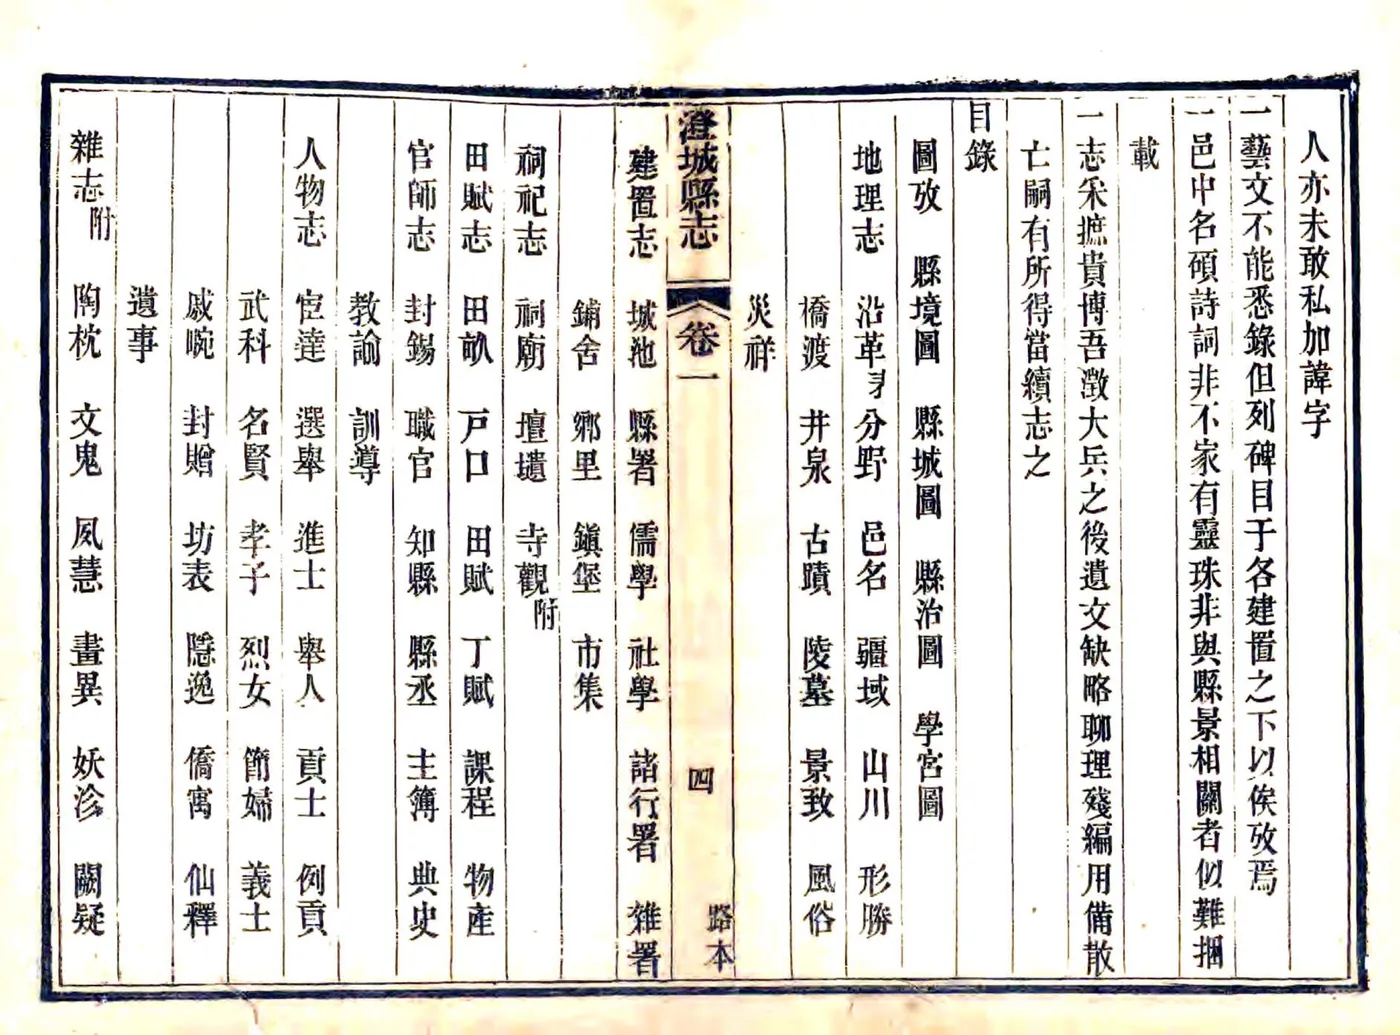 人亦未敢私加諱字
一藝文不能悉錄但列碑目于各建置之下以俟攷焉
一邑中名碩詩詞非不家有靈珠非與縣景相關者似難捆
載
一志采摭貴博吾澂大兵之後遺文缺略聊理殘編用備散
亡嗣有所得當續志之
目錄
圖攷 縣境圖 縣城圖 縣治圖 學宮圖
地理志 沿革 分野 邑名 疆域 山川 形勝
橋渡 井泉 古蹟 陵墓 景致 風俗
災祥
澄城縣志 卷一 四 路本
建置志 城池 縣署 儒學 社學 諸行署 雜署
鋪舍 鄉里 鎭堡 市集
祠祀志 祠廟 壇壝 寺觀附
田賦志 田畝 戸口 田賦 丁賦 課程 物產
官師志 封錫 職官 知縣 縣丞 主簿 典史
教諭 訓導
人物志 宦達 選舉 進士 舉人 貢士 例貢
武科 名賢 孝子 烈女 節婦 義士
戚畹 封贈 坊表 隱逸 僑寓 仙釋
遺事
雜志附 陶枕 文鬼 夙慧 畫異 妖沴 闕疑